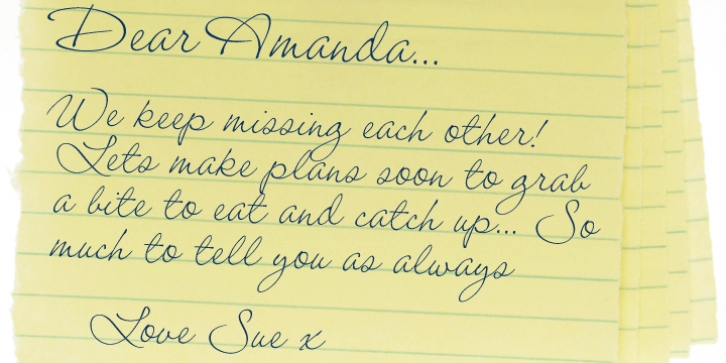 Dear Amanda...
We keep missing each other!
Lets make plans soon to grab
a bite to eat and catch up... So
much to tell you as always
Love Sue x